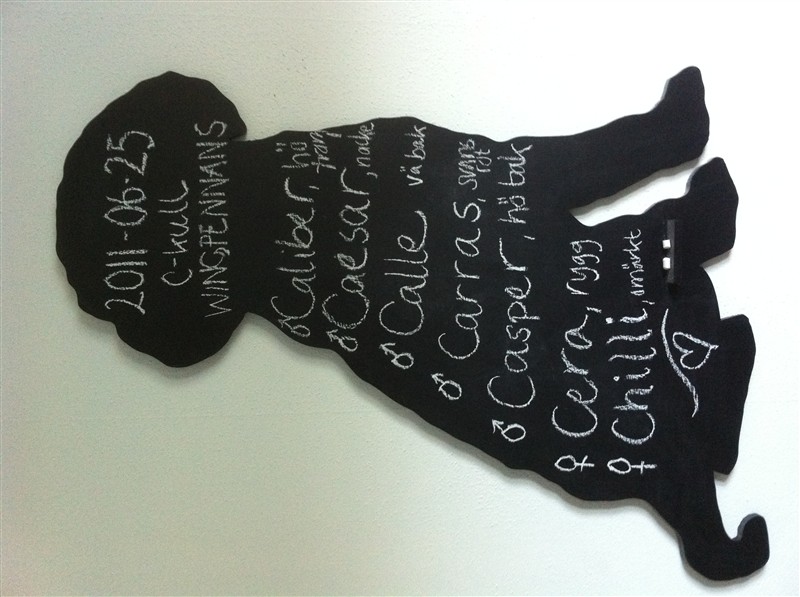 2011-06-25
C-kull
WINGPENNANS
♂Caliber, hö fram
♂Caesar, nacke
♂ Calle vä bak
♂ Carras, svans
♂ Casper, hö bak
♀ Cera, rygg
♀ Chilli, omärkt